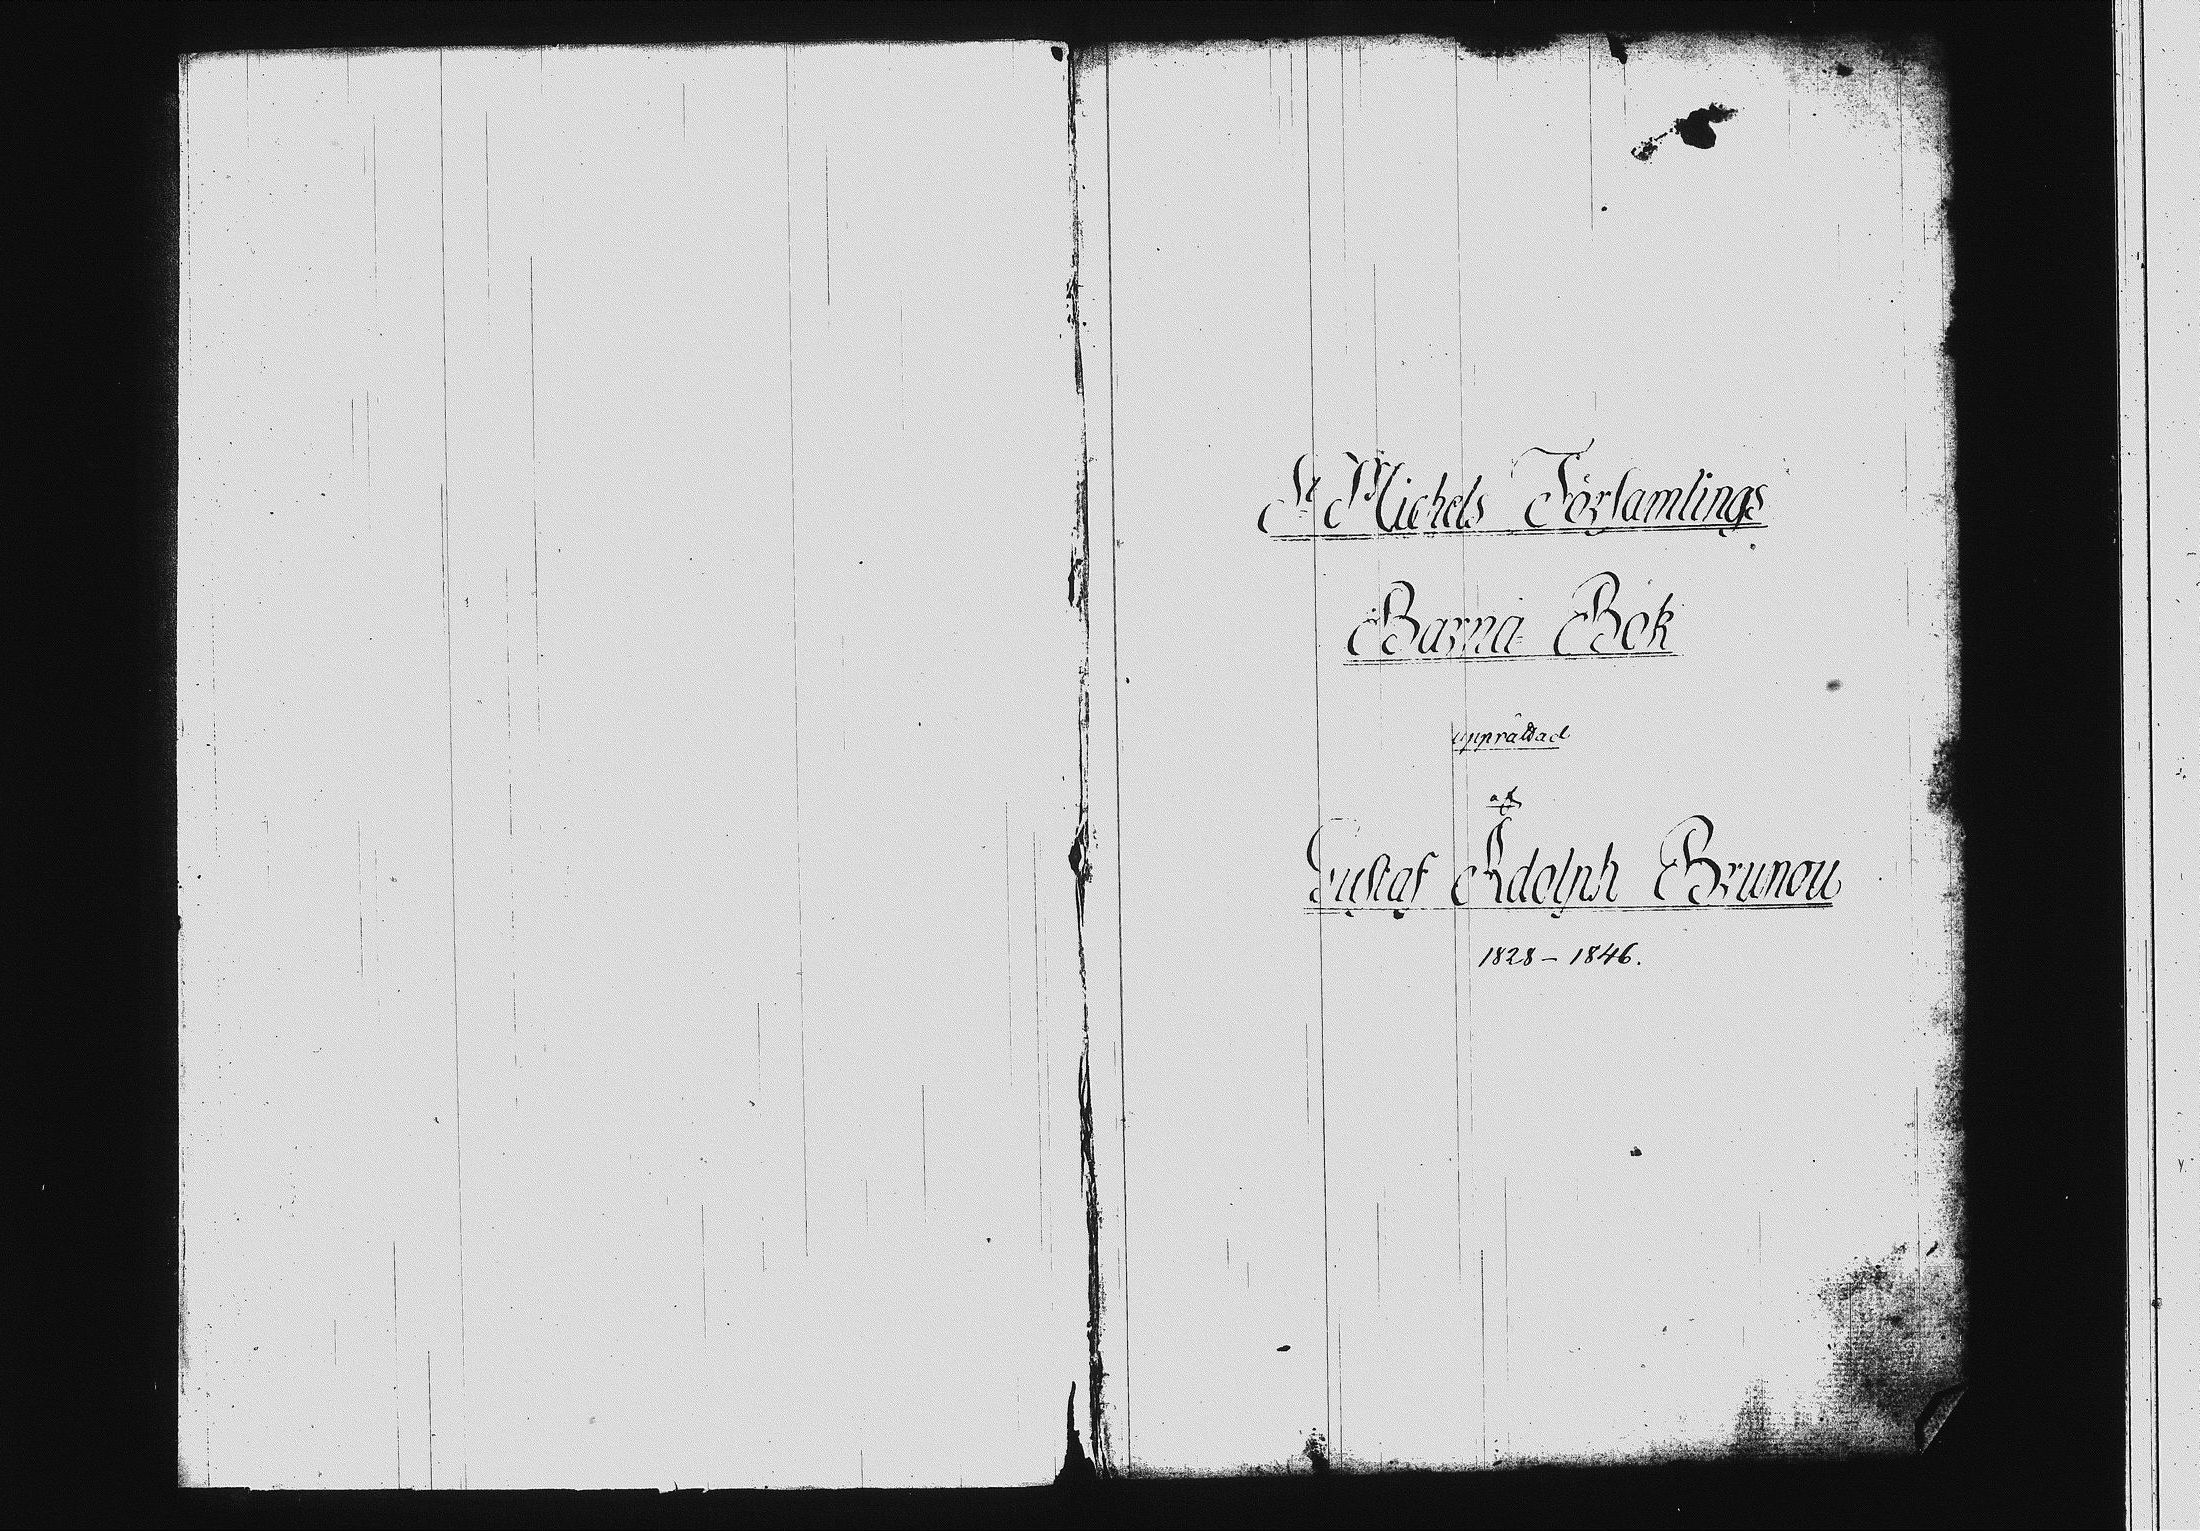 St Michels Församlings
Barna Bok
upprättad
af
Gustaf Adolph Brunou
1828 – 1846.